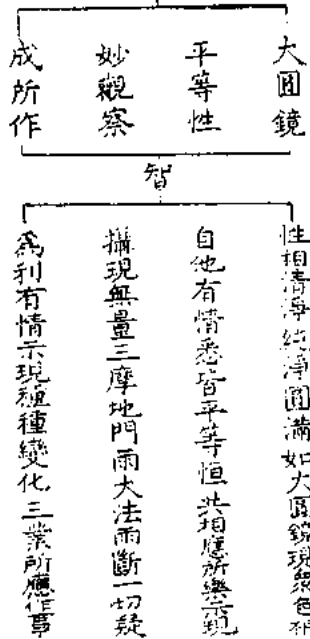 大圓鏡
平等性
妙觀察
成所作
智
性相清淨純淨圓滿如大圓鏡現衆色
自他有情悉皆平等恒共相應所樂示現
攝現無量三摩地門雨大法雨斷一切疑
為利有情示現種種變化三業所應作事